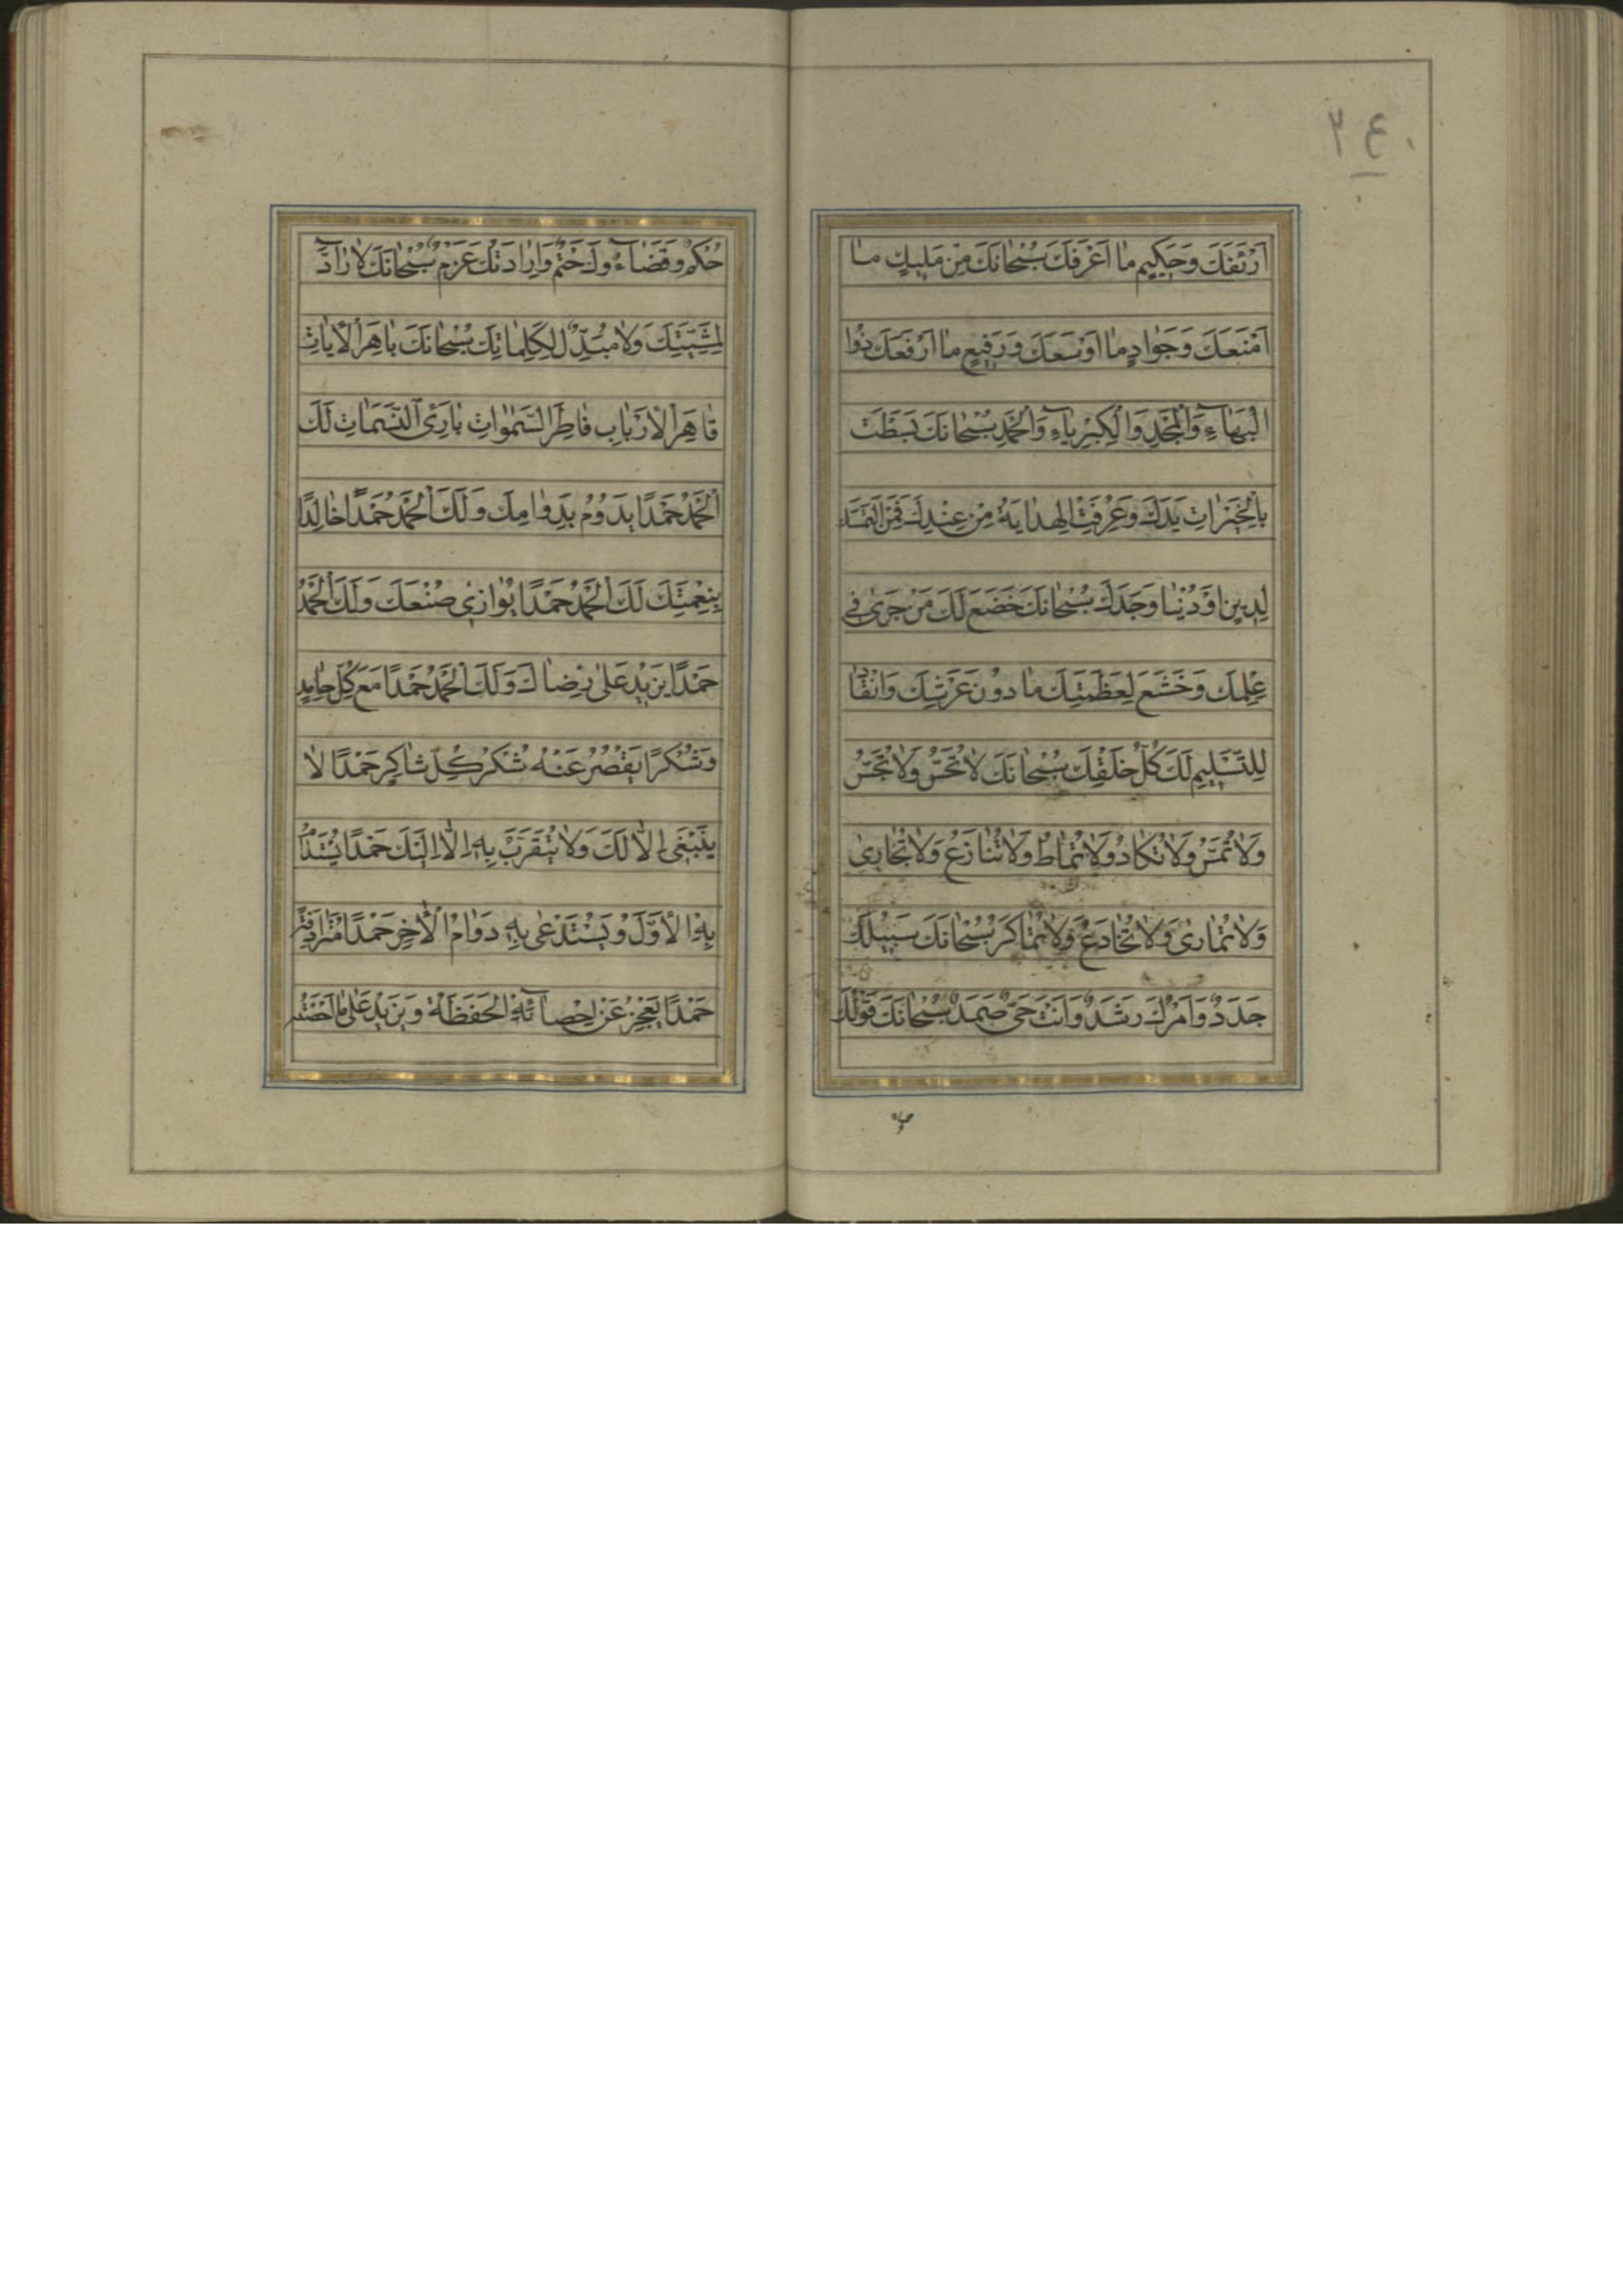 ٢٤٠
اَرْئَفَكَ وَحَكِيمٍ مٰا اَعْرَفَكَ سُبْحٰانَكَ مِنْ مَليكٍ مٰا
اَمْنَعَكَ وَجَوٰادٍ مٰا اَوْسَعَكَ وَرَفيعٍ مٰا اَرْفَعَكَ ذُوا
الْبَهٰاۤءِ وَالْمَجْدِ وَالْكِبْرِيٰاۤءِ وَالْحَمْدِ سُبْحٰانَكَ بَسَطْتَ
بِالْخَيْرٰاتِ يَدَكَ وَعُرِفَتِ الْهِدٰايَةُ مِنْ عِنْدِكَ فَمَنِ الْتَمَسَكَ
لِدينٍ اَوْ دُنْيٰا وَجَدَكَ سُبْحٰانَكَ خَضَعَ لَكَ مَنْ جَرىٰ في
عِلْمِكَ وَخَشَعَ لِعَظَمَتِكَ مٰا دوُنَ عَرْشِكَ وَانْقٰادَ
لِلتَّسْليمِ لَكَ كُلُّ خَلْقِكَ سُبْحٰانَكَ لاٰ تُحَسُّ وَلاٰ تُجَسُّ
وَلاٰ تُمَسُّ وَلاٰ تُكٰادُ وَلاٰ تُمٰاطُ وَلاٰ تُنٰازَعُ وَلاٰ تُجٰارىٰ
وَلاٰ تُمٰارىٰ وَلاٰ تُخٰادَعُ وَلاٰ تُمٰاكَرُ سُبْحٰانَكَ سَبيلُكَ
جَدَدٌ وَاَمْرُكَ رَشَدٌ وَاَنْتَ حَىٌّ صَمَدٌ سُبْحٰانَكَ قَوْلُكَ
حُكْمٌ وَقَضٰاۤءُكَ حَتْمٌ وَاِرٰادَتُكَ عَزْمٌ سُبْحٰانَكَ لاٰ رٰادَّ
لِمَشِيَّتِكَ وَلاٰ مُبَدِّلَ لِكَلِمٰاتِكَ سُبْحٰانَكَ بٰاهِرَ الْاٰيٰاتِ
قٰاهِرَ الْاَرْبٰابِ فٰاطِرَ السَّمٰوٰاتِ بٰارِئَ النَّسَمٰاتِ لَكَ
الْحَمْدُ حَمْدًا يَدُوُمُ بِدَوٰامِكَ وَلَكَ الْحَمْدُ حَمْدًا خٰالِدًا
بِنِعْمَتِكَ لَكَ الْحَمْدُ حَمْدًا يُوٰازي صُنْعَكَ وَلَكَ الْحَمْدُ
حَمْدًا يَزيدُ عَلىٰ رِضٰاكَ وَلَكَ الْحَمْدُ حَمْدًا مَعَ كُلِّ حٰامِدٍ
وَشُكْرًا يَقْصُرُ عَنْهُ شُكْرُ كُلِّ شٰاكِرٍ حَمْدًا لاٰ
يَنْبَغي اِلاّٰ لَكَ وَلاٰ يُتَقَرَّبُ بِهِ اِلاّٰ اِلَيْكَ حَمْدًا يُسْتَدٰامُ
بِهِ الْاَوَّلُ وَيُسْتَدْعىٰ بِهِ دَوٰامُ الْاٰخِرِ حَمْدًا
حَمْدًا يَعْجِزُ عَنْ اِحْصٰاۤئِهِ الْحَفَظَةُ وَيَزيدُ عَلىٰ مٰا اَحْصَتْهُ